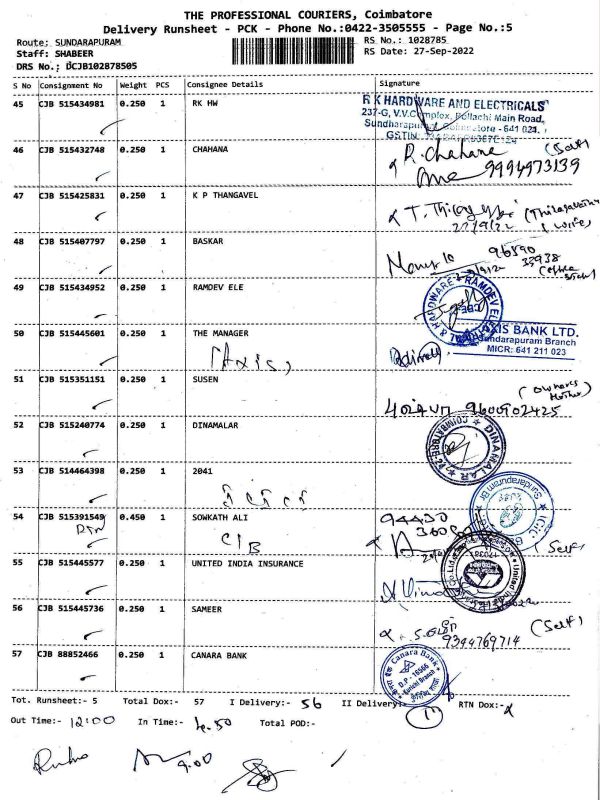 THE PROFESSIONAL COURIERS, Coimbatore
Delivery Runsheet - PCK - Phone No.:0422-3505555 - Page No.:5
Route: SUNDARAPURAM
RS No.: 1028785
Staff: SHABEER
RS Date: 27-Sep-2022
DRS No.: DCJB102878505
S No Consignment No Weight PCS Consignee Details Signature
45 CJB 515434981 0.250 1 RK HW
R K HARDWARE AND ELECTRICALS
237-G, V.V.Complex, Pollachi Main Road,
Sundarapuram, Coimbatore - 641 021.
46 CJB 515432748 0.250 1 CHAHANA
R. Chahana
9994973139
47 CJB 515425831 0.250 1 K P THANGAVEL
(Wife)
48 CJB 515407797 0.250 1 BASKAR
49 CJB 515434952 0.250 1 RAMDEV ELE
50 CJB 515445601 0.250 1 THE MANAGER
(Axis)
AXIS BANK LTD.
Sundarapuram Branch
MICR: 641 211 023
51 CJB 515351151 0.250 1 SUSEN
9600902425
52 CJB 515240774 0.250 1 DINAMALAR
DINAMALAR
COIMBATORE
53 CJB 514464398 0.250 1 2041
54 CJB 515391549 0.450 1 SOWKATH ALI
C/B
(Self)
55 CJB 515445577 0.250 1 UNITED INDIA INSURANCE
56 CJB 515445736 0.250 1 SAMEER
(Self)
9344769714
57 CJB 88852466 0.250 1 CANARA BANK
Canara Bank
Tot. Runsheet:- 5 Total Dox:- 57 I Delivery:- 56 II Delivery:- RTN Dox:-
(1)
Out Time:- 12:00 In Time:- 4.50 Total POD:-
9.00